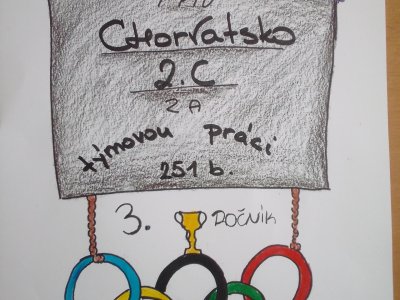 Chorvatsko
2.C
ZA
týmovou práci
251 b.
3. ROČNÍK